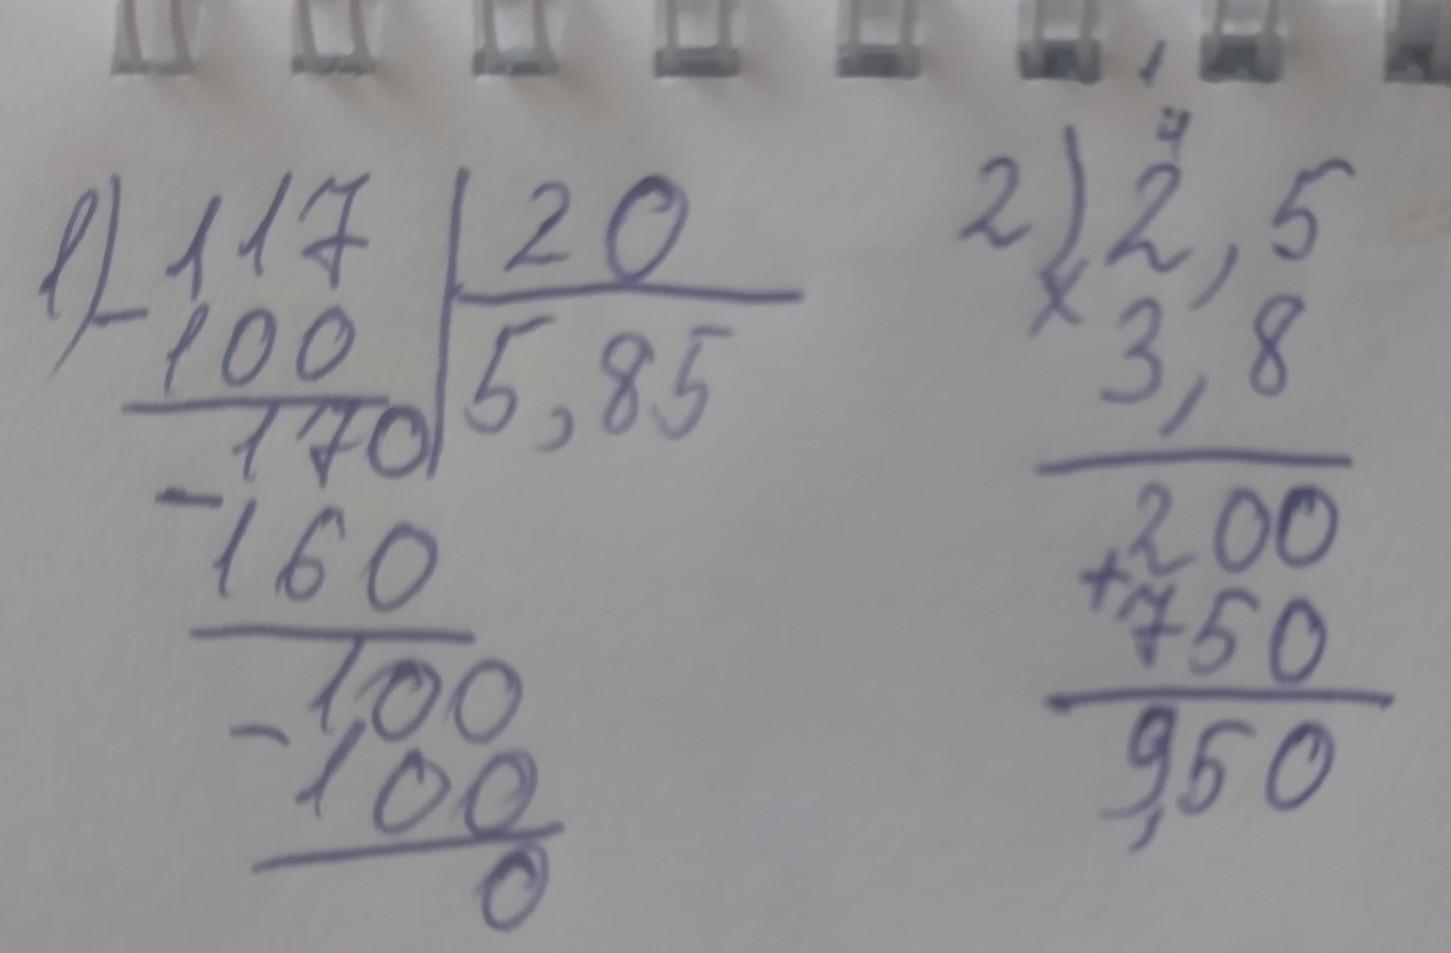 1) - 117 | 20
100 | 5,85
170
- 160
100
- 100
0
1
4
2) 2,5
x 3,8
200
+ 750
9,50